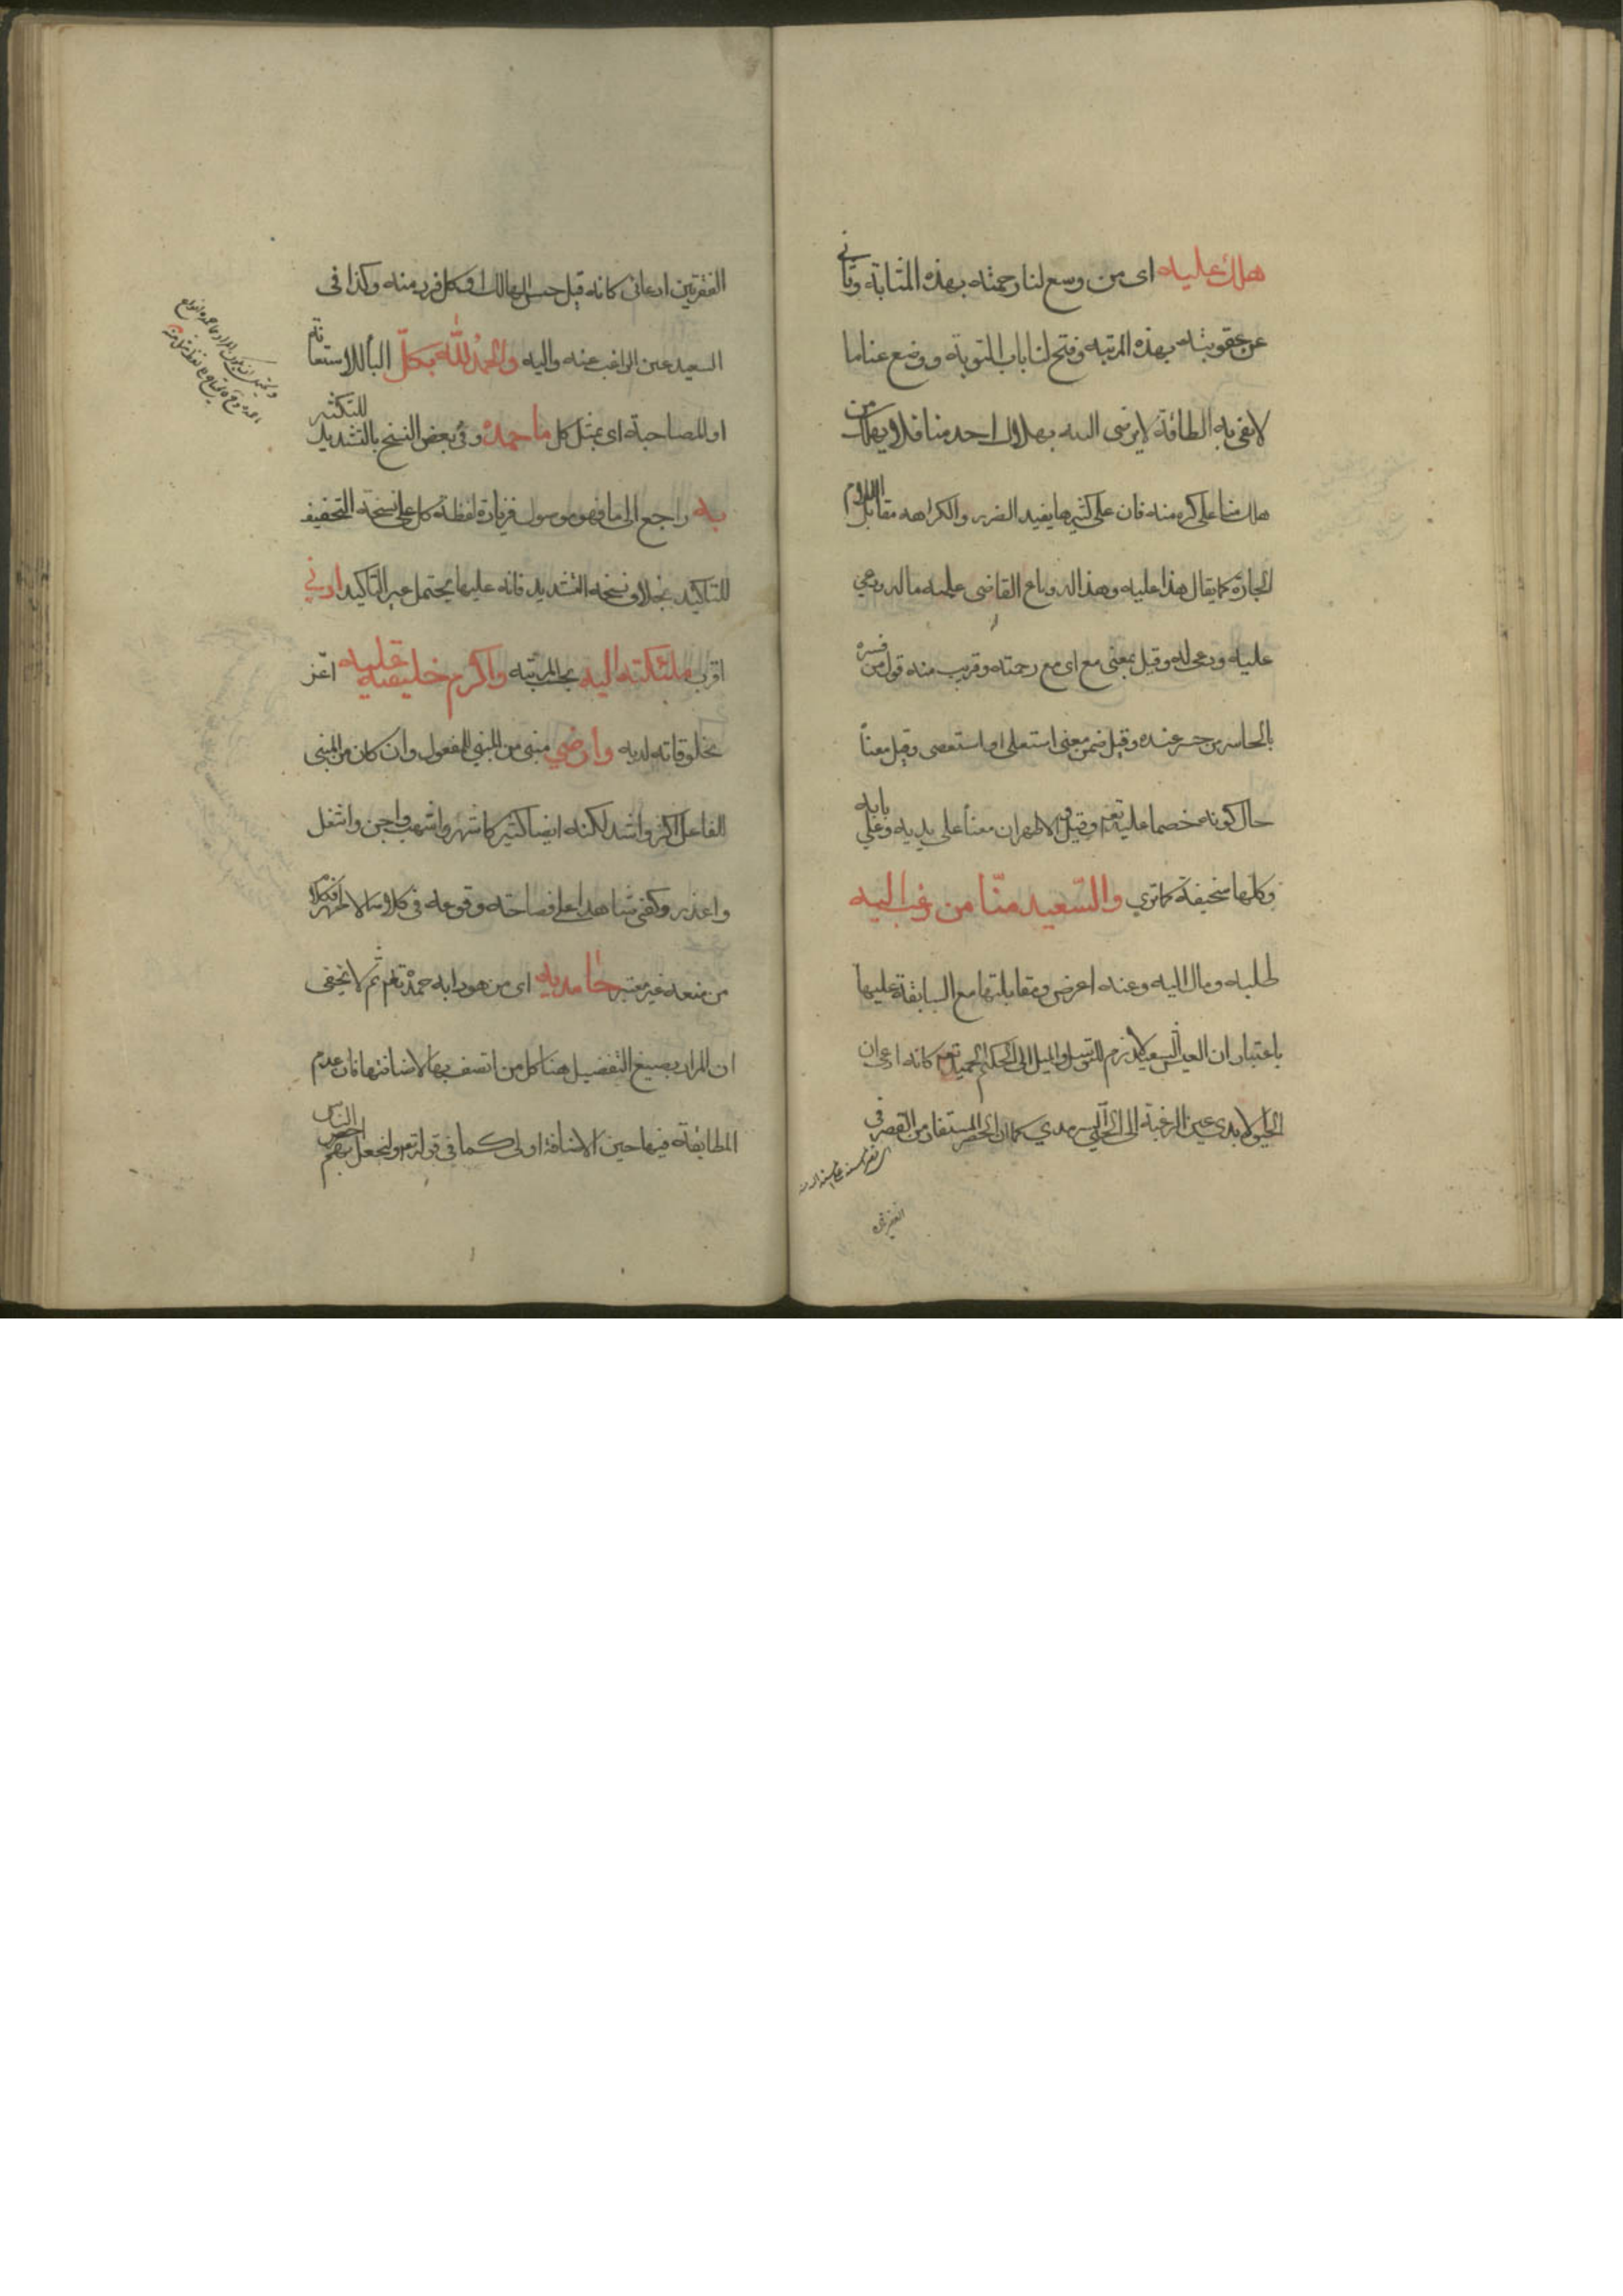 هلك عليه اى من وسع لنا رحمته بهذه المثابة وتأنى
عن عقوبته بهذه المرتبه وفتح لنا باب التوبة ووضع عنا ما
لا نفى به الطاقة لا يرضى الله بهلاك احد منا فلا يهلك من
هلك منا على كره منه فان على كثيرها يفيد الضرر والكراهه مقابل اللام
الجارة كما يقال هذا عليه وهذا له وباع القاضى عليه ماله ودعى
عليه ودعى له وقيل بمعنى مع اى مع رحمته وقريب منه قول من فسره
بالخاسر من خسر عنده وقيل ضمن معنى استعلى او استعصى وقيل معناه
حال كونه خصما عليه تعم وقيل الاظهر ان معناه على يديه وعلى بابه
وكلها سخيفة كما ترى والسّعيد منّا من رغب اليه
طلبه ومال اليه وعنده اعرض ومقابلتها مع السابقة عليها
باعتبار ان العبد السعيد لازم التوسل والميل الى الحكيم الحميد تعم كانه ادعى ان
الرغبة الى سرمدى كما ان الحصر المستفاد من القصر فى
الفقرتين ادعائى كانه قيل جنس الهالك او كل فرد منه وكذا فى
السعيد عين الراغب عنه واليه والحمد لله بكلّ الباء للاستعانة
او للمصاحبة اى بمثل كل ما حمده وفى بعض النسخ بالتشديد للتكثير
به راجع الى ما فهو موصول فزيادة لفظة كل على نسخة التخفيف
للتاكيد بخلاف نسخة التشديد فانه عليها يحتمل غير التاكيد ادنى
اقرب ملئكته اليه بحسب المرتبه واكرم خليقته عليه اعز
مخلوقاته لديه وارضى مبنى من المبنى للمفعول وان كان من المبنى
للفاعل اكثر واشد لكنه ايضا كثير كاشهر واشهب واجن واشغل
واعذر وكفى شاهدا على فصاحته وقوعه فى كلامه الاطهر فكلام
من منعه غير معتبر حامديه اى من هو دابه حمده تعم ثم لا يخفى
ان المراد بصيغ التفضيل هنا كل من اتصف بها لاضافتها فان عدم
المطابقة فيها حين الاضافة اولى كما فى قوله تعم ولتجدنهم احرص الناس